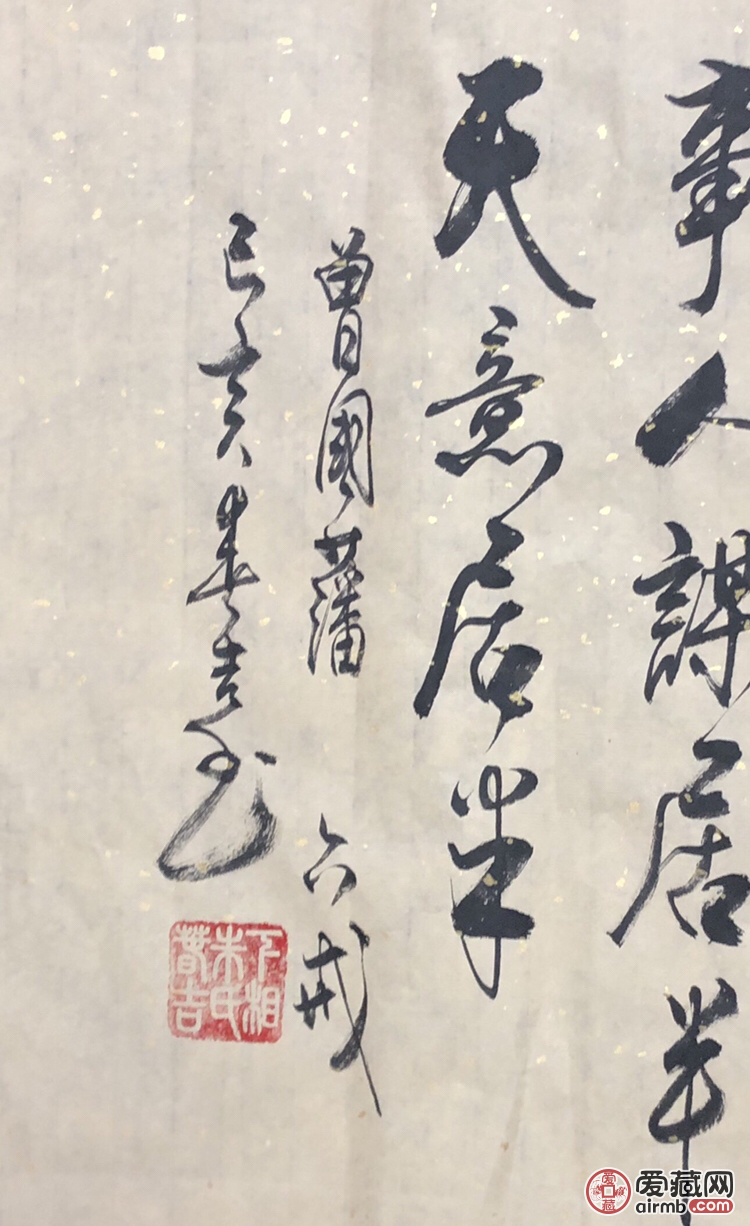 事人謀居半
天意居半
曾國藩 六戒
己亥春吉书
下相
朱氏
春吉
爱藏网
airmb.com